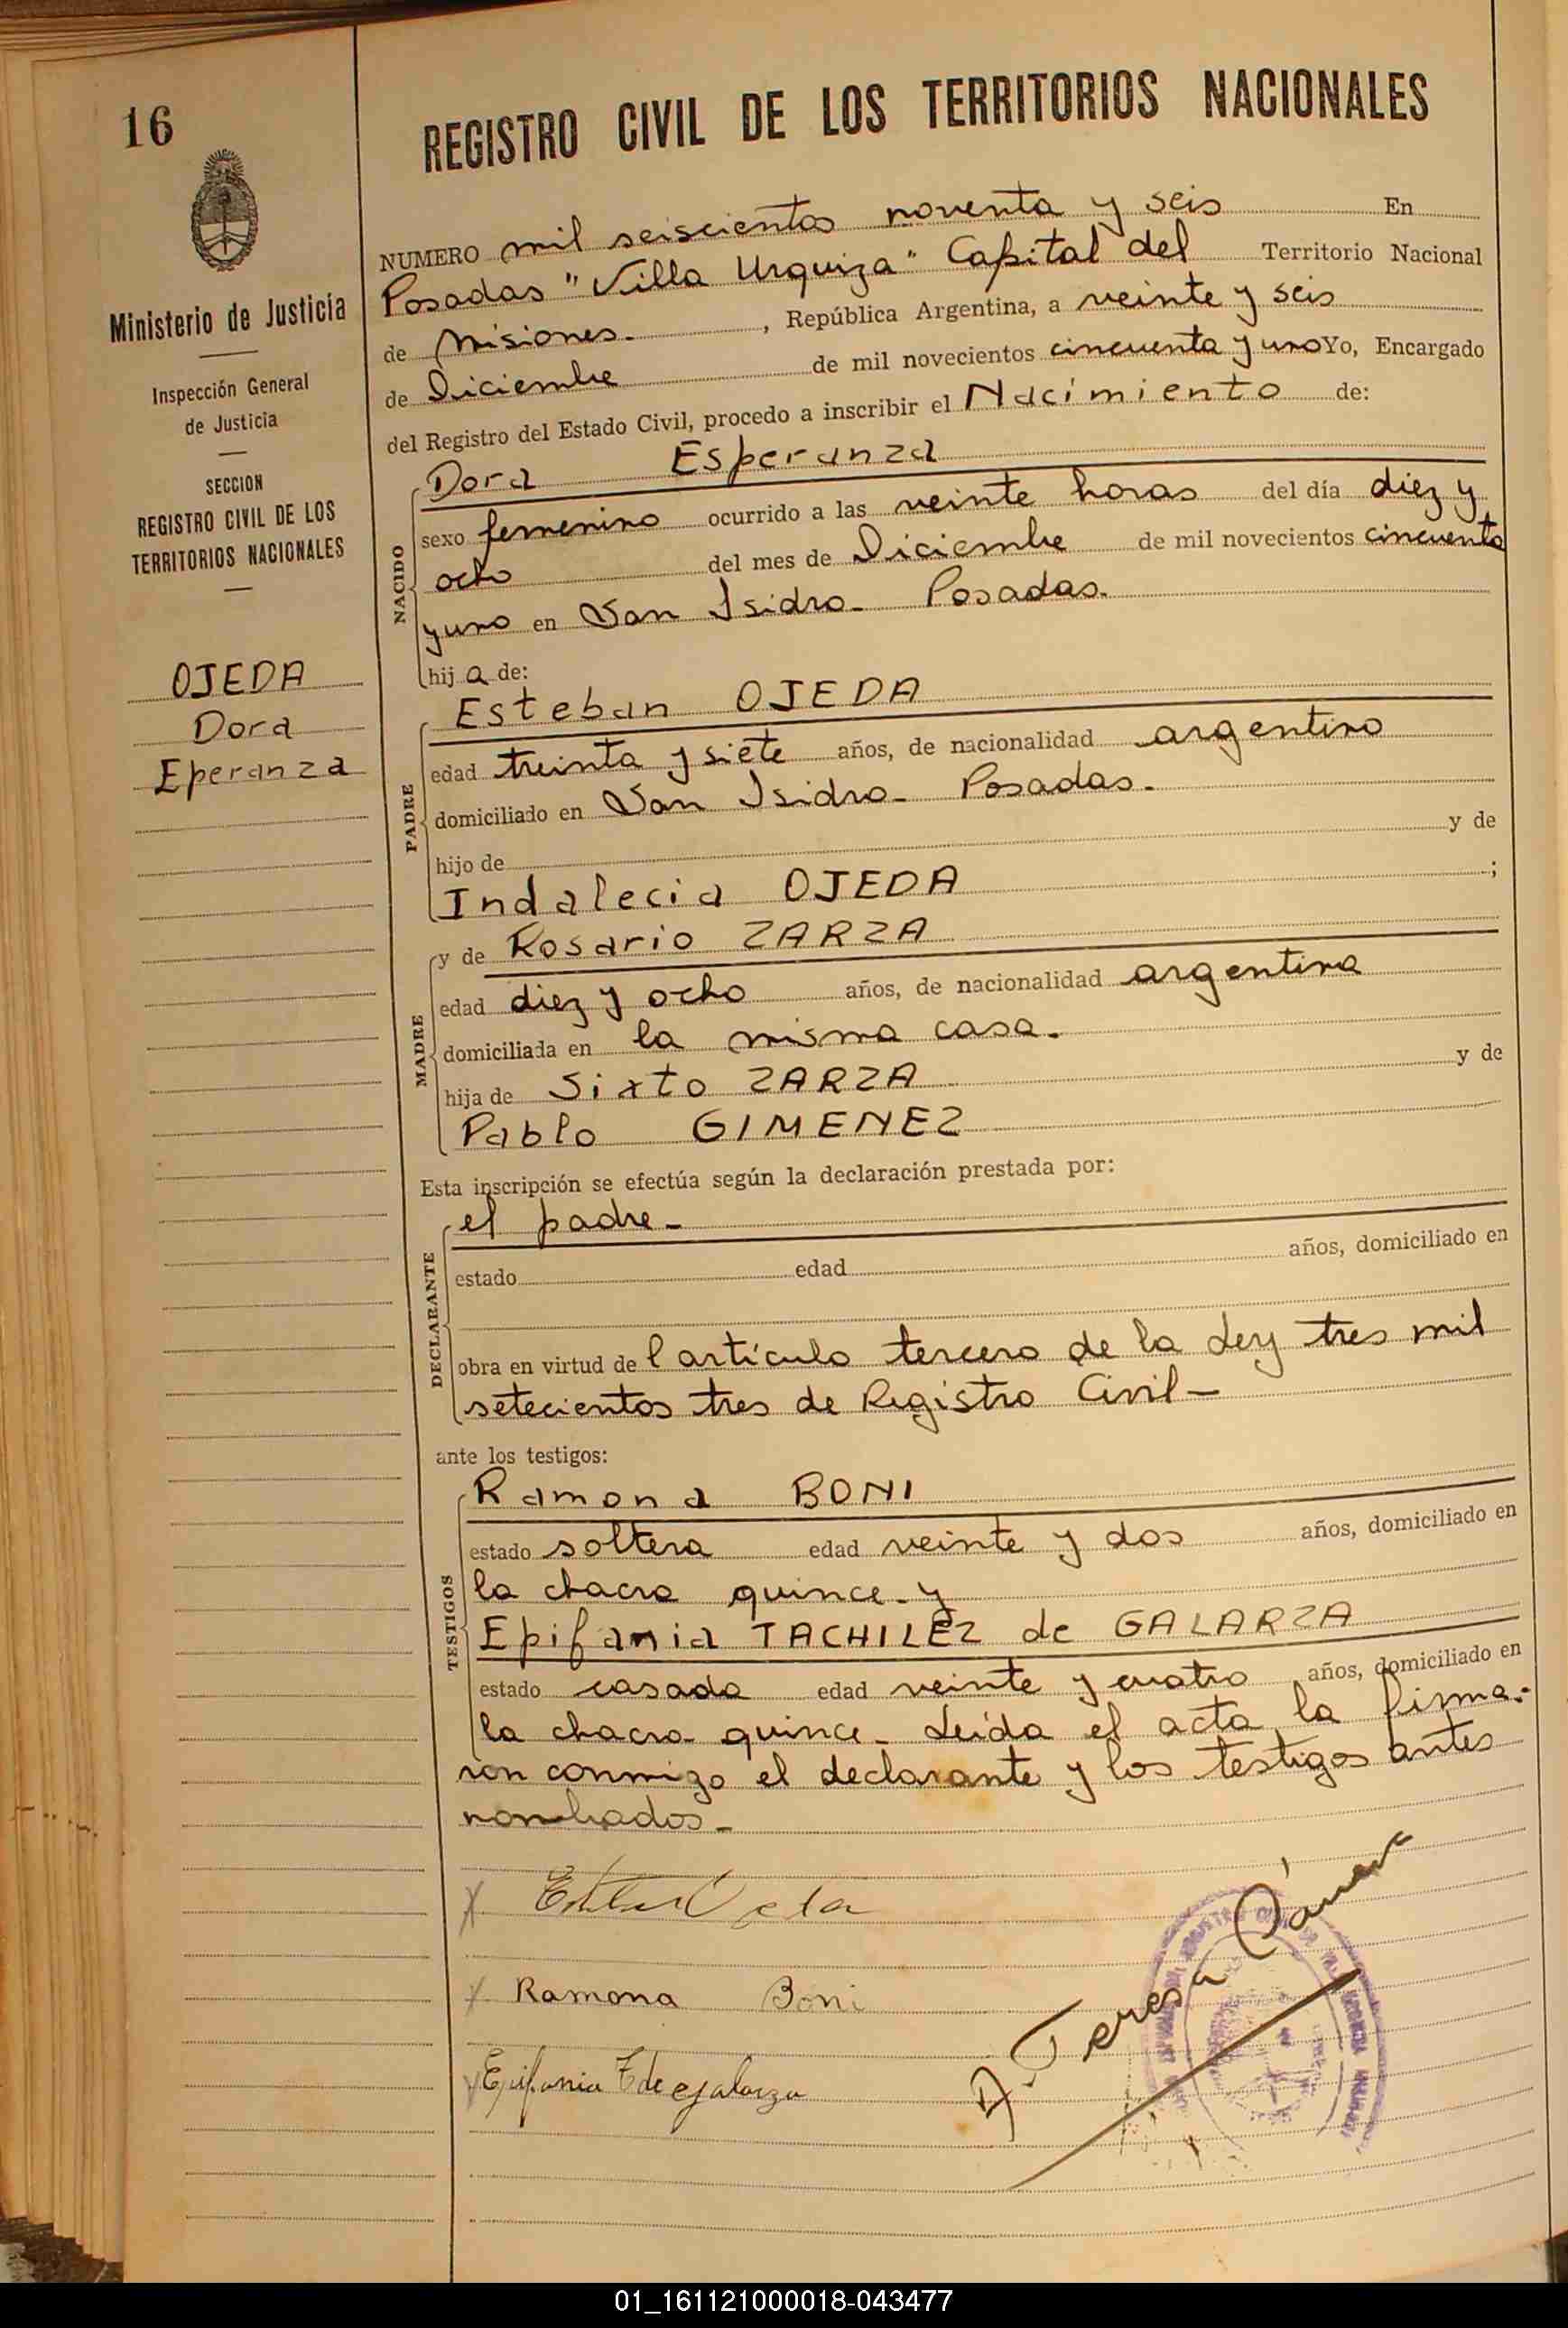 16
REGISTRO CIVIL DE LOS TERRITORIOS NACIONALES
Ministerio de Justicia
Inspección General
de Justicia
SECCION
REGISTRO CIVIL DE LOS
TERRITORIOS NACIONALES
OJEDA
Dora
Eperanza
NUMERO mil seiscientos noventa y seis En
Posadas "Villa Urquiza" Capital del Territorio Nacional
de Misiones. , República Argentina, a veinte y seis
de Diciembre de mil novecientos cincuenta y uno Yo, Encargado
del Registro del Estado Civil, procedo a inscribir el Nacimiento de:
NACIDO
Dora Esperanza
sexo femenino ocurrido a las veinte horas del día diez y
ocho del mes de Diciembre de mil novecientos cincuenta
y uno en San Isidro - Posadas.
hij a de:
PADRE
Esteban OJEDA
edad treinta y siete años, de nacionalidad argentino
domiciliado en San Isidro - Posadas.
hijo de y de
Indalecia OJEDA ;
MADRE
y de Rosario ZARZA
edad diez y ocho años, de nacionalidad argentina
domiciliada en la misma casa.
hija de Sixto ZARZA y de
Pablo GIMENEZ
Esta inscripción se efectúa según la declaración prestada por:
DECLARANTE
el padre -
estado edad años, domiciliado en
obra en virtud de l artículo tercero de la Ley tres mil
setecientos tres de Registro Civil -
ante los testigos:
TESTIGOS
Ramona BONI
estado soltera edad veinte y dos años, domiciliado en
la chacra quince - y
Epifania TACHILEZ de GALARZA
estado casada edad veinte y cuatro años, domiciliado en
la chacra quince - Leída el acta, la firma-
ron conmigo el declarante y los testigos antes
nombrados -
Ramona Boni
Epifania T de galarza
A. Teresa
01_161121000018-043477